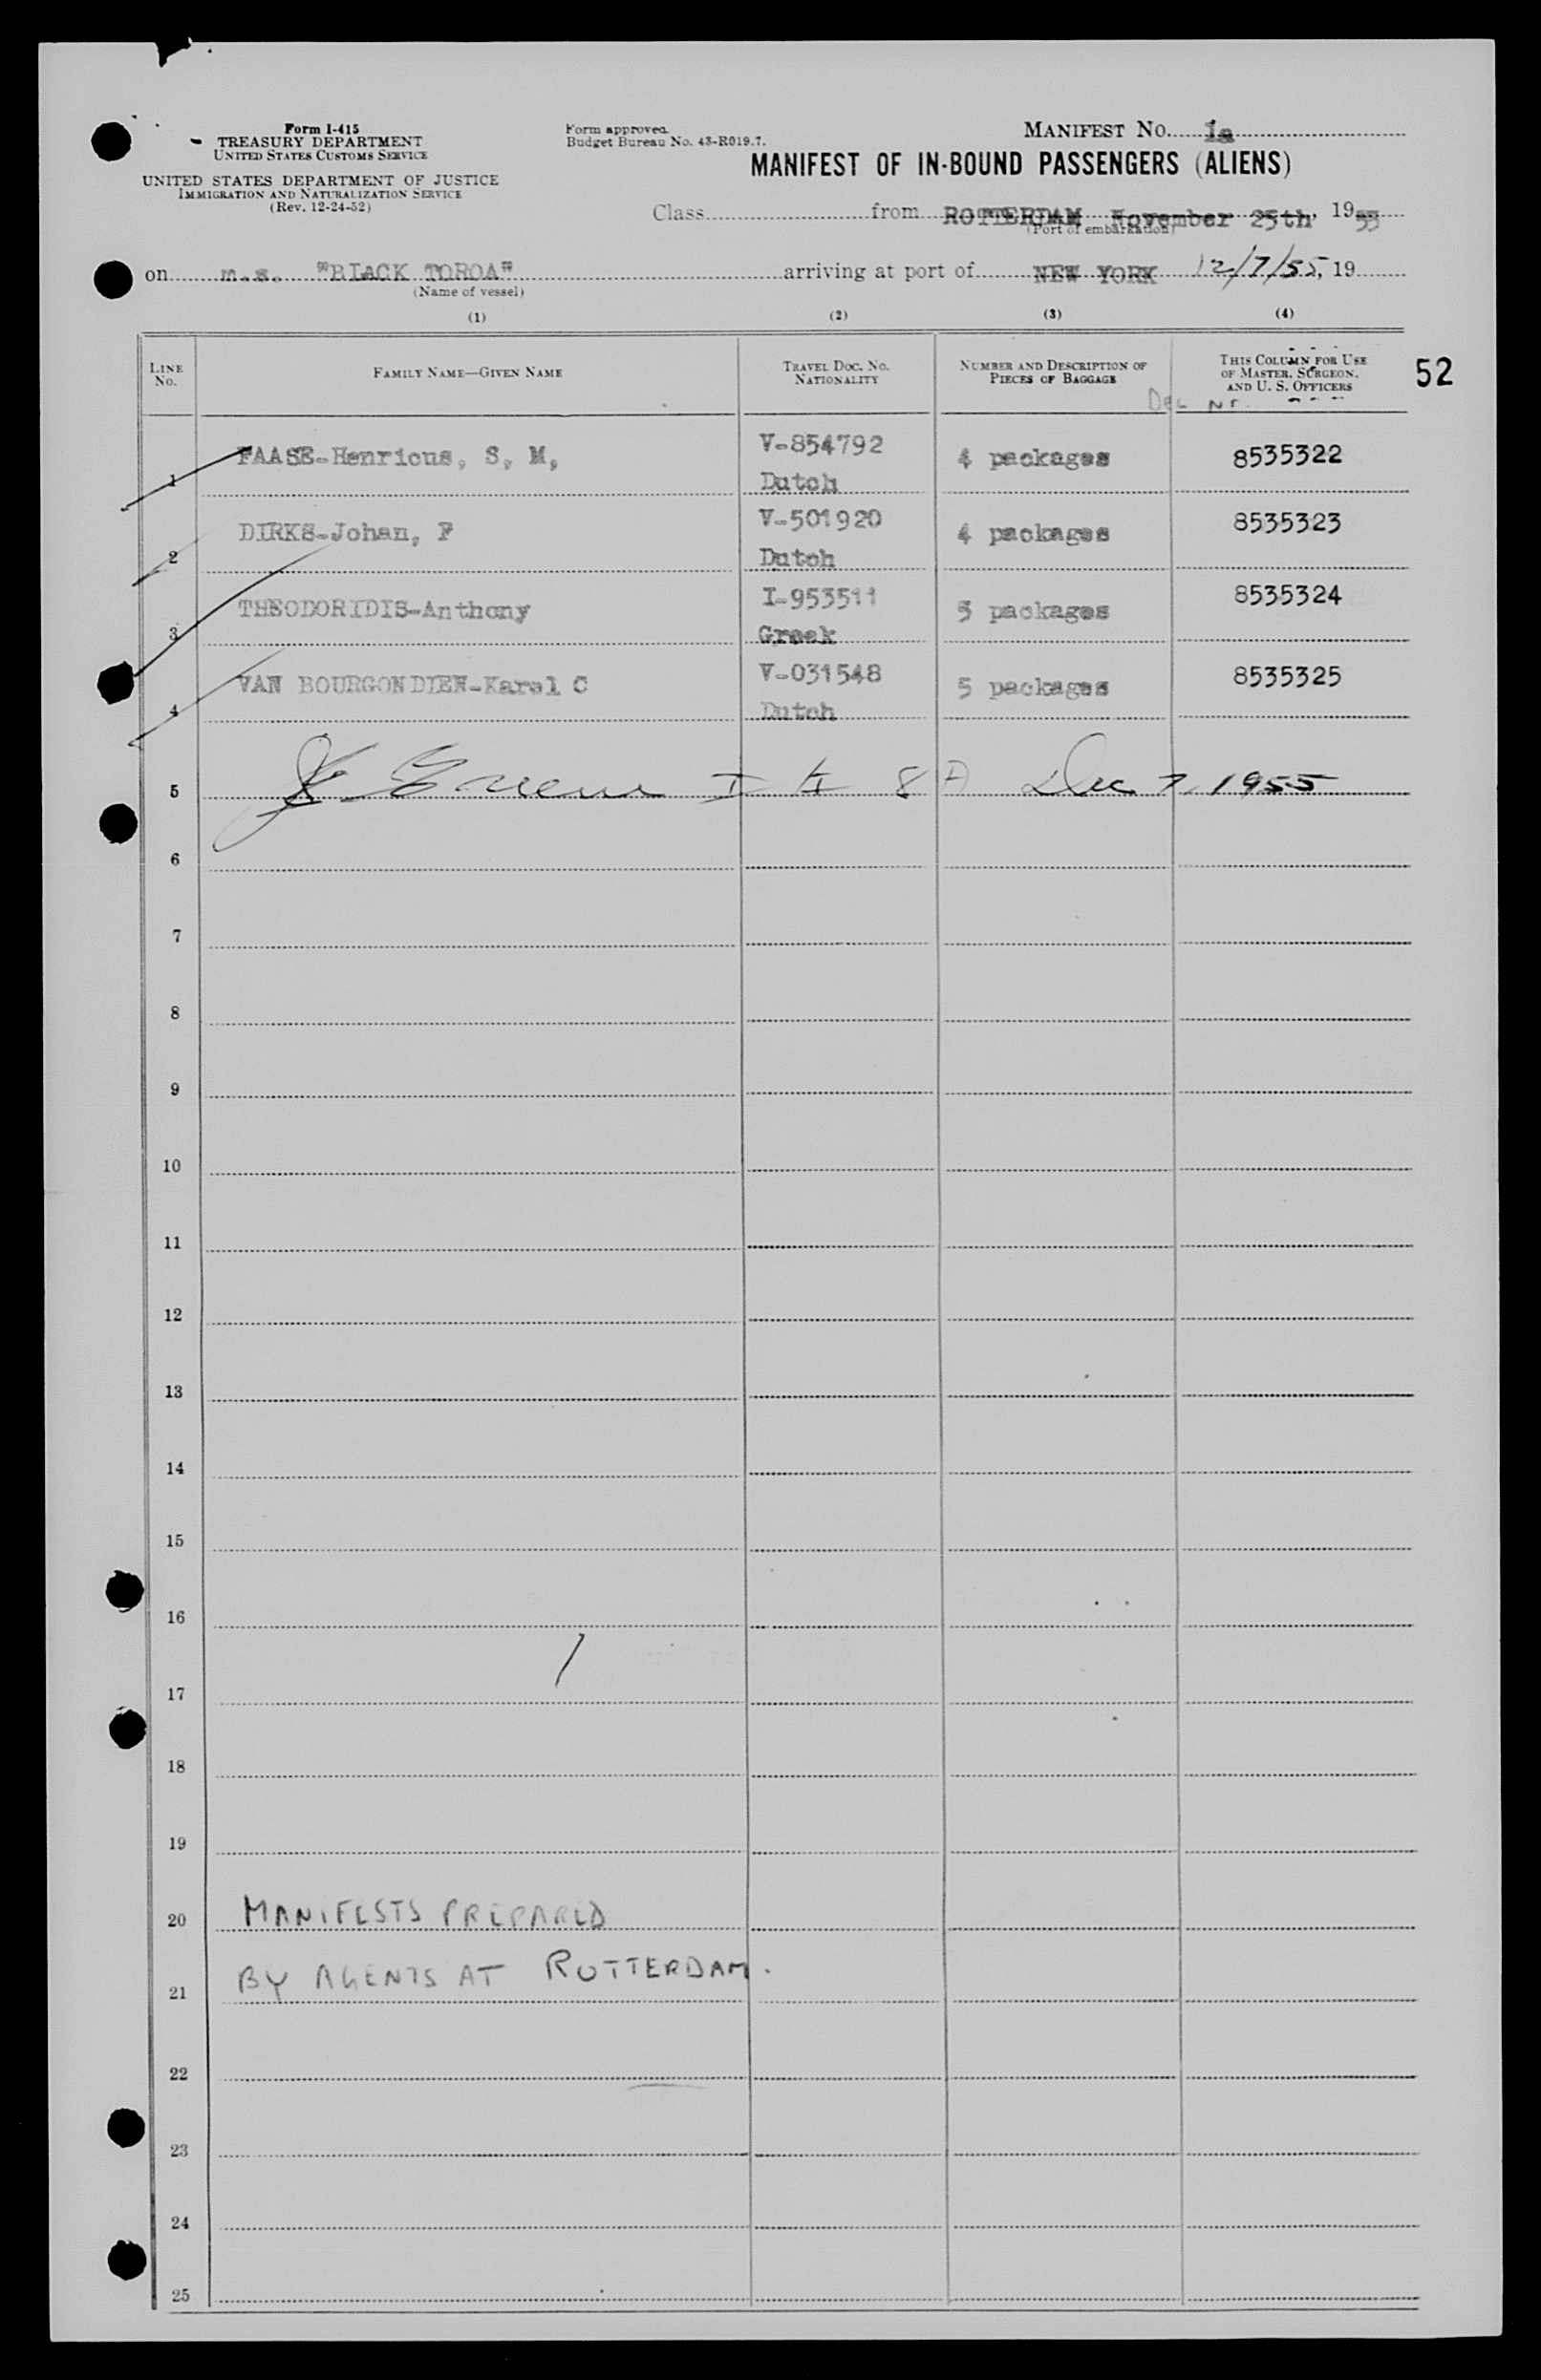 Form I-415
TREASURY DEPARTMENT
UNITED STATES CUSTOMS SERVICE
UNITED STATES DEPARTMENT OF JUSTICE
IMMIGRATION AND NATURALIZATION SERVICE
(Rev. 12-24-52)
Form approved.
Budget Bureau No. 43-R019.7.
MANIFEST NO. 1a
MANIFEST OF IN-BOUND PASSENGERS (ALIENS)
Class from ROTTERDAM November 25th, 1955
(Port of embarkation)
on m.s. "BLACK TOROA" arriving at port of NEW YORK 12/7/55, 19
(Name of vessel)
(1) (2) (3) (4)
LINE NO. FAMILY NAME—GIVEN NAME TRAVEL DOC. NO. NATIONALITY NUMBER AND DESCRIPTION OF PIECES OF BAGGAGE THIS COLUMN FOR USE OF MASTER, SURGEON, AND U. S. OFFICERS
52
Dec Nr.
1 FAASE-Henricus, S, M, V-854792 Dutch 4 packages 8535322
2 DIRKS-Johan, F V-501920 Dutch 4 packages 8535323
3 THEODORIDIS-Anthony I-953511 Greek 5 packages 8535324
4 VAN BOURGONDIEN-Karel C V-031548 Dutch 5 packages 8535325
5 Dec 7, 1955
6
7
8
9
10
11
12
13
14
15
16
17
18
19
20 MANIFESTS PREPARED
21 BY AGENTS AT ROTTERDAM.
22
23
24
25